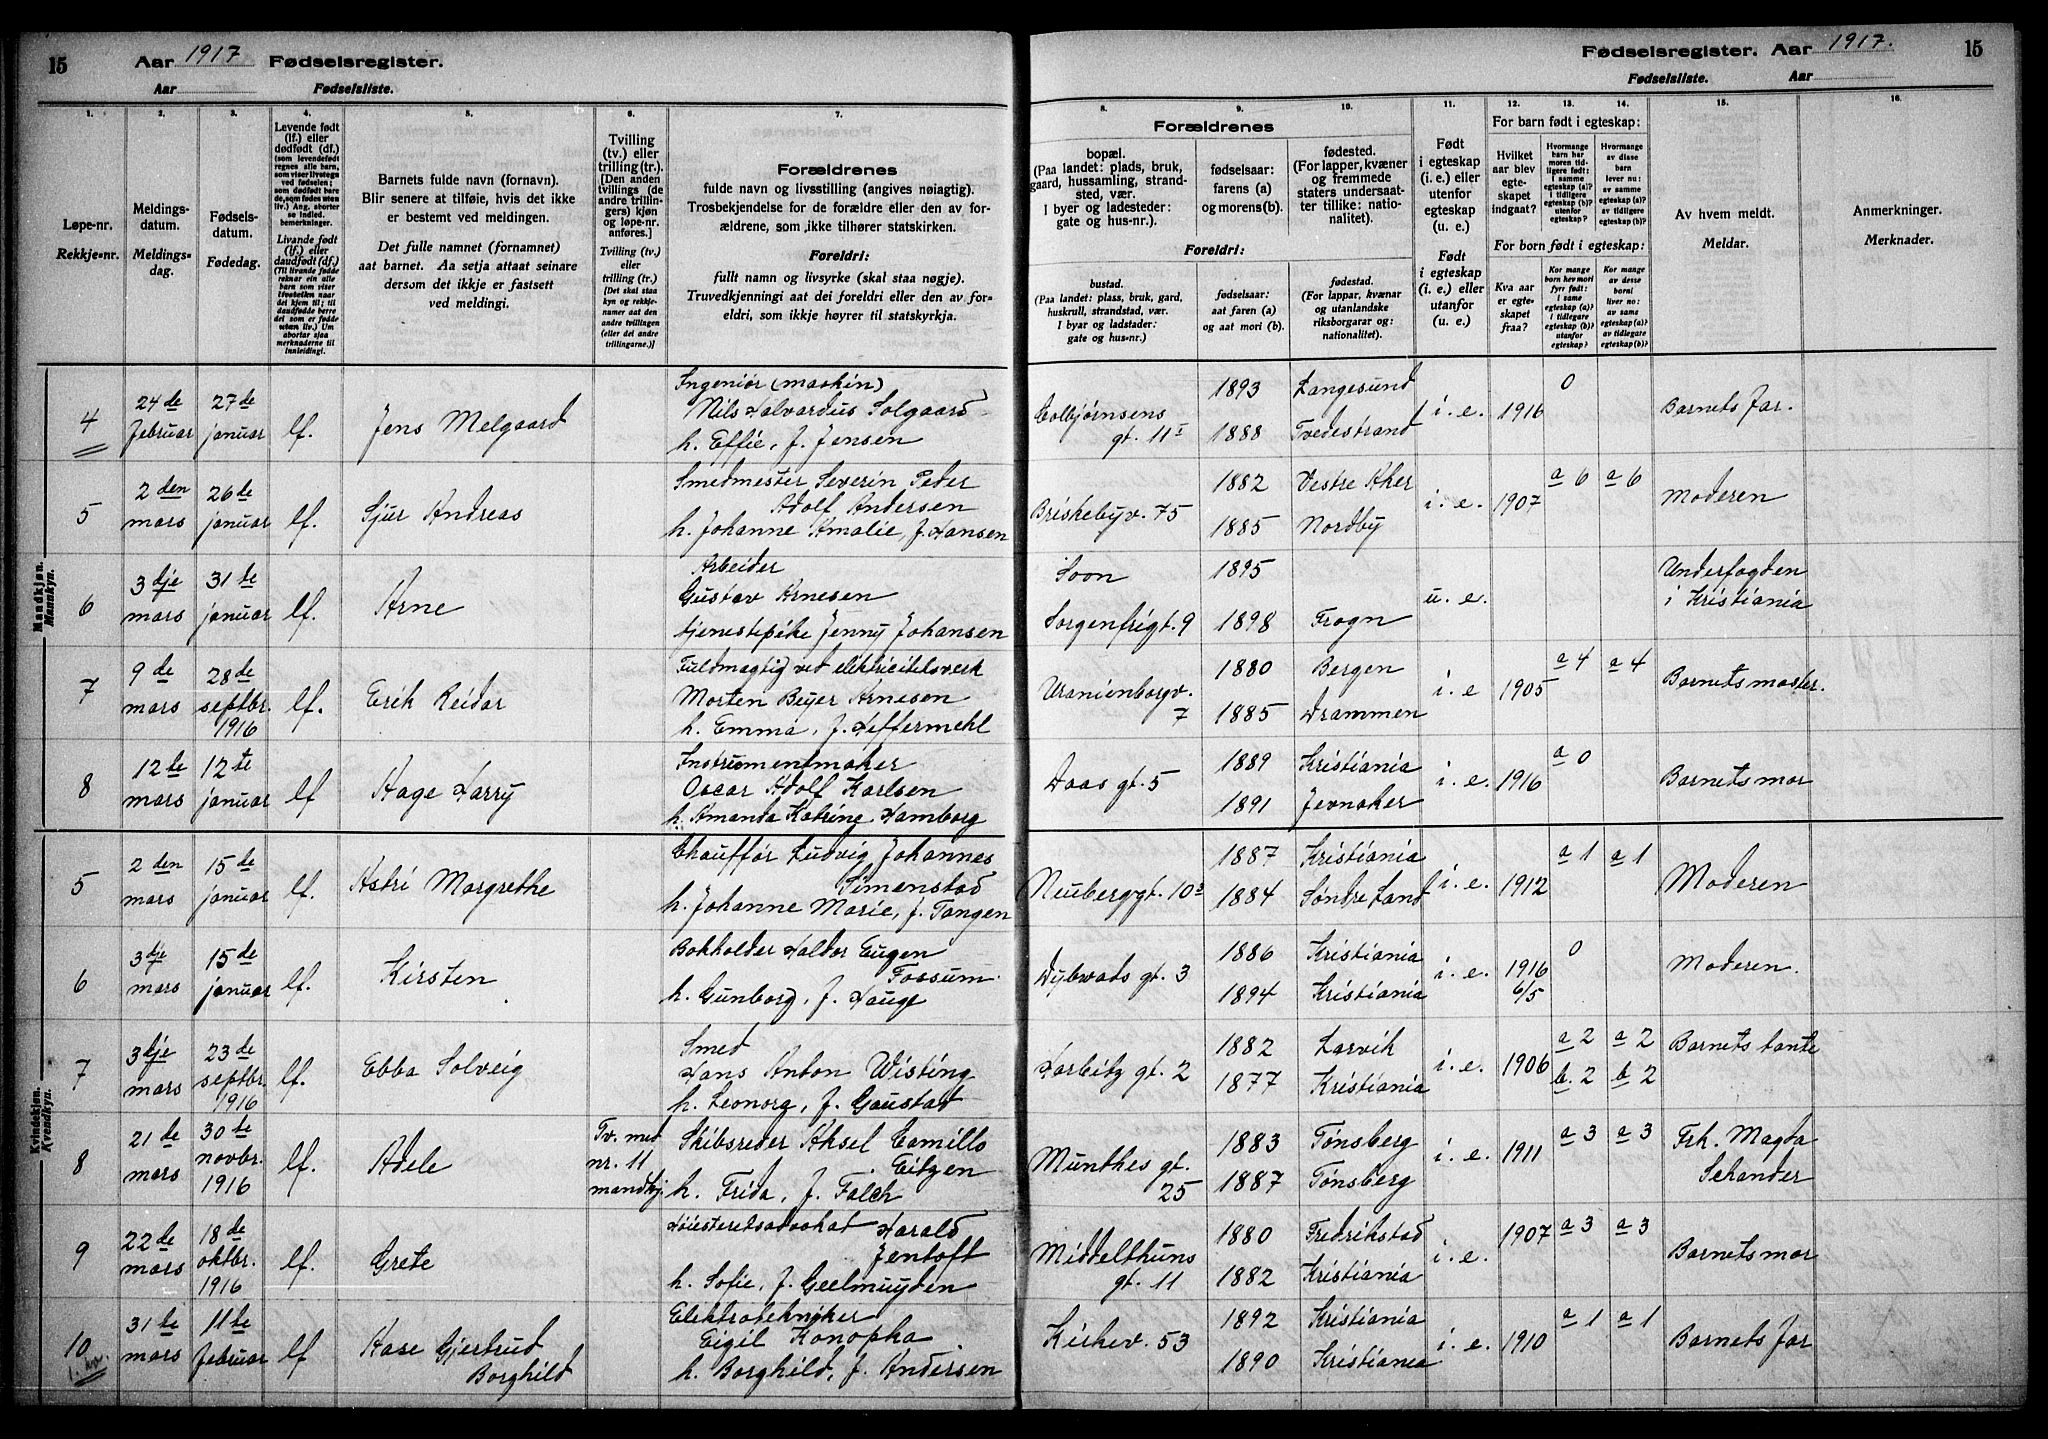 15 Aar 1917 Fødselsregister.
Aar Fødselsliste.
Fødselsregister. Aar 1917. 15
Fødselsliste. Aar
1. 2. 3. 4. 5. 6. 7.
Løpe-nr.
Rekkje-nr.
Meldings-
datum.
Meldings-
dag.
Fødsels-
datum.
Fødedag.
Levende født
(lf.) eller
dødfødt (df.)
(som levendefødt
regnes alle barn,
som viser livstegn
ved fødselen;
som dødfødt bare
de, som fødes uten
liv.) Ang. aborter
se indled.
bemerkninger.
Livande født
(lf.) eller
daudfødt (df.)
(Til livande fødde
reknar ein alle
barn som viser
livsteikn naar
det kjem til; til
daudfødde berre
dei som er fødde
utan liv.) Um
abortar sjaa
merknaderne til
innleidingi.
Barnets fulde navn (fornavn).
Blir senere at tilføie, hvis det ikke
er bestemt ved meldingen.
Det fulle namnet (fornamnet)
aat barnet. Aa setja attaat seinare
dersom det ikkje er fastsett
ved meldingi.
Tvilling
(tv.) eller
trilling (tr.).
[Den anden
tvillings (de
andre trillin-
gers) kjøn
og løpe-nr.
anføres.]
Tvilling (tv.)
eller
trilling (tr.)
[Det skal staa
kyn og rekkje-
numer aat den
andre tvillingen
(eller dei andre
trillingarne.)]
Forældrenes
fulde navn og livsstilling (angives nøiagtig).
Trosbekjendelse for de forældre eller den av for-
ældrene, som ikke tilhører statskirken.
Foreldri:
fullt namn og livsyrke (skal staa nøgje).
Truvedkjenningi aat dei foreldri eller den av for-
eldri, som ikkje høyrer til statskyrkja.
8. 9. 10. 11. 12. 13. 14. 15. 16.
Forældrenes
bopæl.
(Paa landet: plads, bruk,
gaard, hussamling, strand-
sted, vær.
I byer og ladesteder:
gate og hus-nr.)
fødselsaar:
farens (a)
og morens (b).
fødested.
(For lapper, kvæner
og fremmede
staters undersaat-
ter tillike: na-
tionalitet).
Foreldri:
bustad.
(Paa landet: plass, bruk, gard,
huskrull, strandstad, vær.
I byar og ladstader:
gate og hus-nr.)
fødselsaar:
aat faren (a)
og aat mori (b).
fødestad.
(For lappar, kvænar
og utanlandske
riksborgarar og:
nationalitet).
Født
i egteskap
(i. e.) eller
utenfor
egteskap
(u. e.)
Født
i egteskap
(i. e.) eller
utanfor
(u. e.)
For barn født i egteskap:
Hvilket
aar blev
egte-
skapet
indgaat?
Hvormange
barn har
moren tid-
ligere født:
I samme
egteskap (a)?
I tidligere
egteskap (b)?
utenfor
egteskap?
Hvormange
av disse
barn
lever nu:
av samme
egteskap (a)?
av tidligere
egteskap (b)?
For born født i egteskap:
Kva aar
er egte-
skapet
fraa?
Kor mange
barn hev mori
fyrr født:
I same
egteskap (a)?
I tidlegare
egteskap (b)?
utanfor
egteskap?
Kor mange
av desse
borni
liver no:
av same
egteskap (a)?
av tidlegare
egteskap (b)?
Av hvem meldt.
Meldar.
Anmerkninger.
Merknader.
Mandkjøn.
Mannkyn.
4 24de februar 27de januar lf. Jens Melgaard
Ingeniør (maskin)
Nils Halvardus Solgaard
h. Effie, f. Jensen
Colbjørnsens gt. 11 I 1893 1888 Langesund Tvedestrand i. e. 1916 0 Barnets far.
5 2den mars 26de januar lf. Sjur Andreas
Smedmester Severin Peder
Adolf Andersen
h. Johanne Amalie, f. Hansen
Briskebyv. 75 1882 1885 Vestre Aker Nordby i. e. 1907 a 6 a 6 Moderen
6 3dje mars 31te januar lf. Arne
Arbeider
Gustav Arnesen
tjenestepike Jenny Johansen
Soon Sorgenfrigt. 9 1895 1898 Frogn u. e. Underfogden i Kristiania
7 9de mars 28de septbr. 1916 lf. Erik Reidar
Fuldmagtig ved elektricitetsverk
Morten Beyer Arnesen
h. Emma, f. Heffermehl
Uranienborgv. 7 1880 1885 Bergen Drammen i. e 1905 a 4 a 4 Barnets moster.
8 12te mars 12te januar lf Aage Harry
Instrumentmaker
Oscar Adolf Karlsen
h. Amanda Katrine Hamborg
Daas gt. 5 1889 1891 Kristiania Jevnaker i. e. 1916 a 0 Barnets mor
Kvindekjøn.
Kvendkyn.
5 2den mars 15de januar lf. Astri Margrethe
Chauffør Ludvig Johannes
Simenstad
h. Johanne Marie, f. Tangen
Neuberggt. 10 1887 1884 Kristiania Søndre Land i. e. 1912 a 1 a 1 Moderen
6 3dje mars 15de januar lf. Kirsten
Bokholder Haldor Eugen
Fossum
h. Gunborg, f. Hauge
Dybwads gt. 3 1886 1894 Kristiania Kristiania i. e. 1916 6/5 0 Moderen.
7 3dje mars 23de septbr. 1916 lf. Ebba Solveig
Smed
Hans Anton Wisting
h. Leonora, f. Gaustad
Harbitz gt. 2 1882 1877 Larvik Kristiania i. e. 1906 a 2 b. 2 a 2 b 2 Barnets tante
8 21de mars 30te novbr. 1916 lf. Adele Tv. med nr. 11 mandkj.
Skibsreder Aksel Camillo
Eitzen
h. Frida, f. Falch
Munthes gt. 25 1883 1887 Tønsberg Tønsberg i. e. 1911 a 3 a 3 Frk. Magda Schander
9 22de mars 18de oktbr. 1916 lf. Grete
Høiesteretsadvokat Harald
Jentoft
h. Sofie, f. Geelmuyden
Middelthuns gt. 11 1880 1882 Fredrikstad Kristiania i. e. 1907 a 3 a 3 Barnets mor
10 31te mars 11te februar lf Aase Gjertrud Borghild
Elektrotekniker
Eigil Konopka
h. Borghild, f. Andersen
Kirkev. 53 1892 1890 Kristiania Kristiania i. e. 1910 a 1 a 1 Barnets far